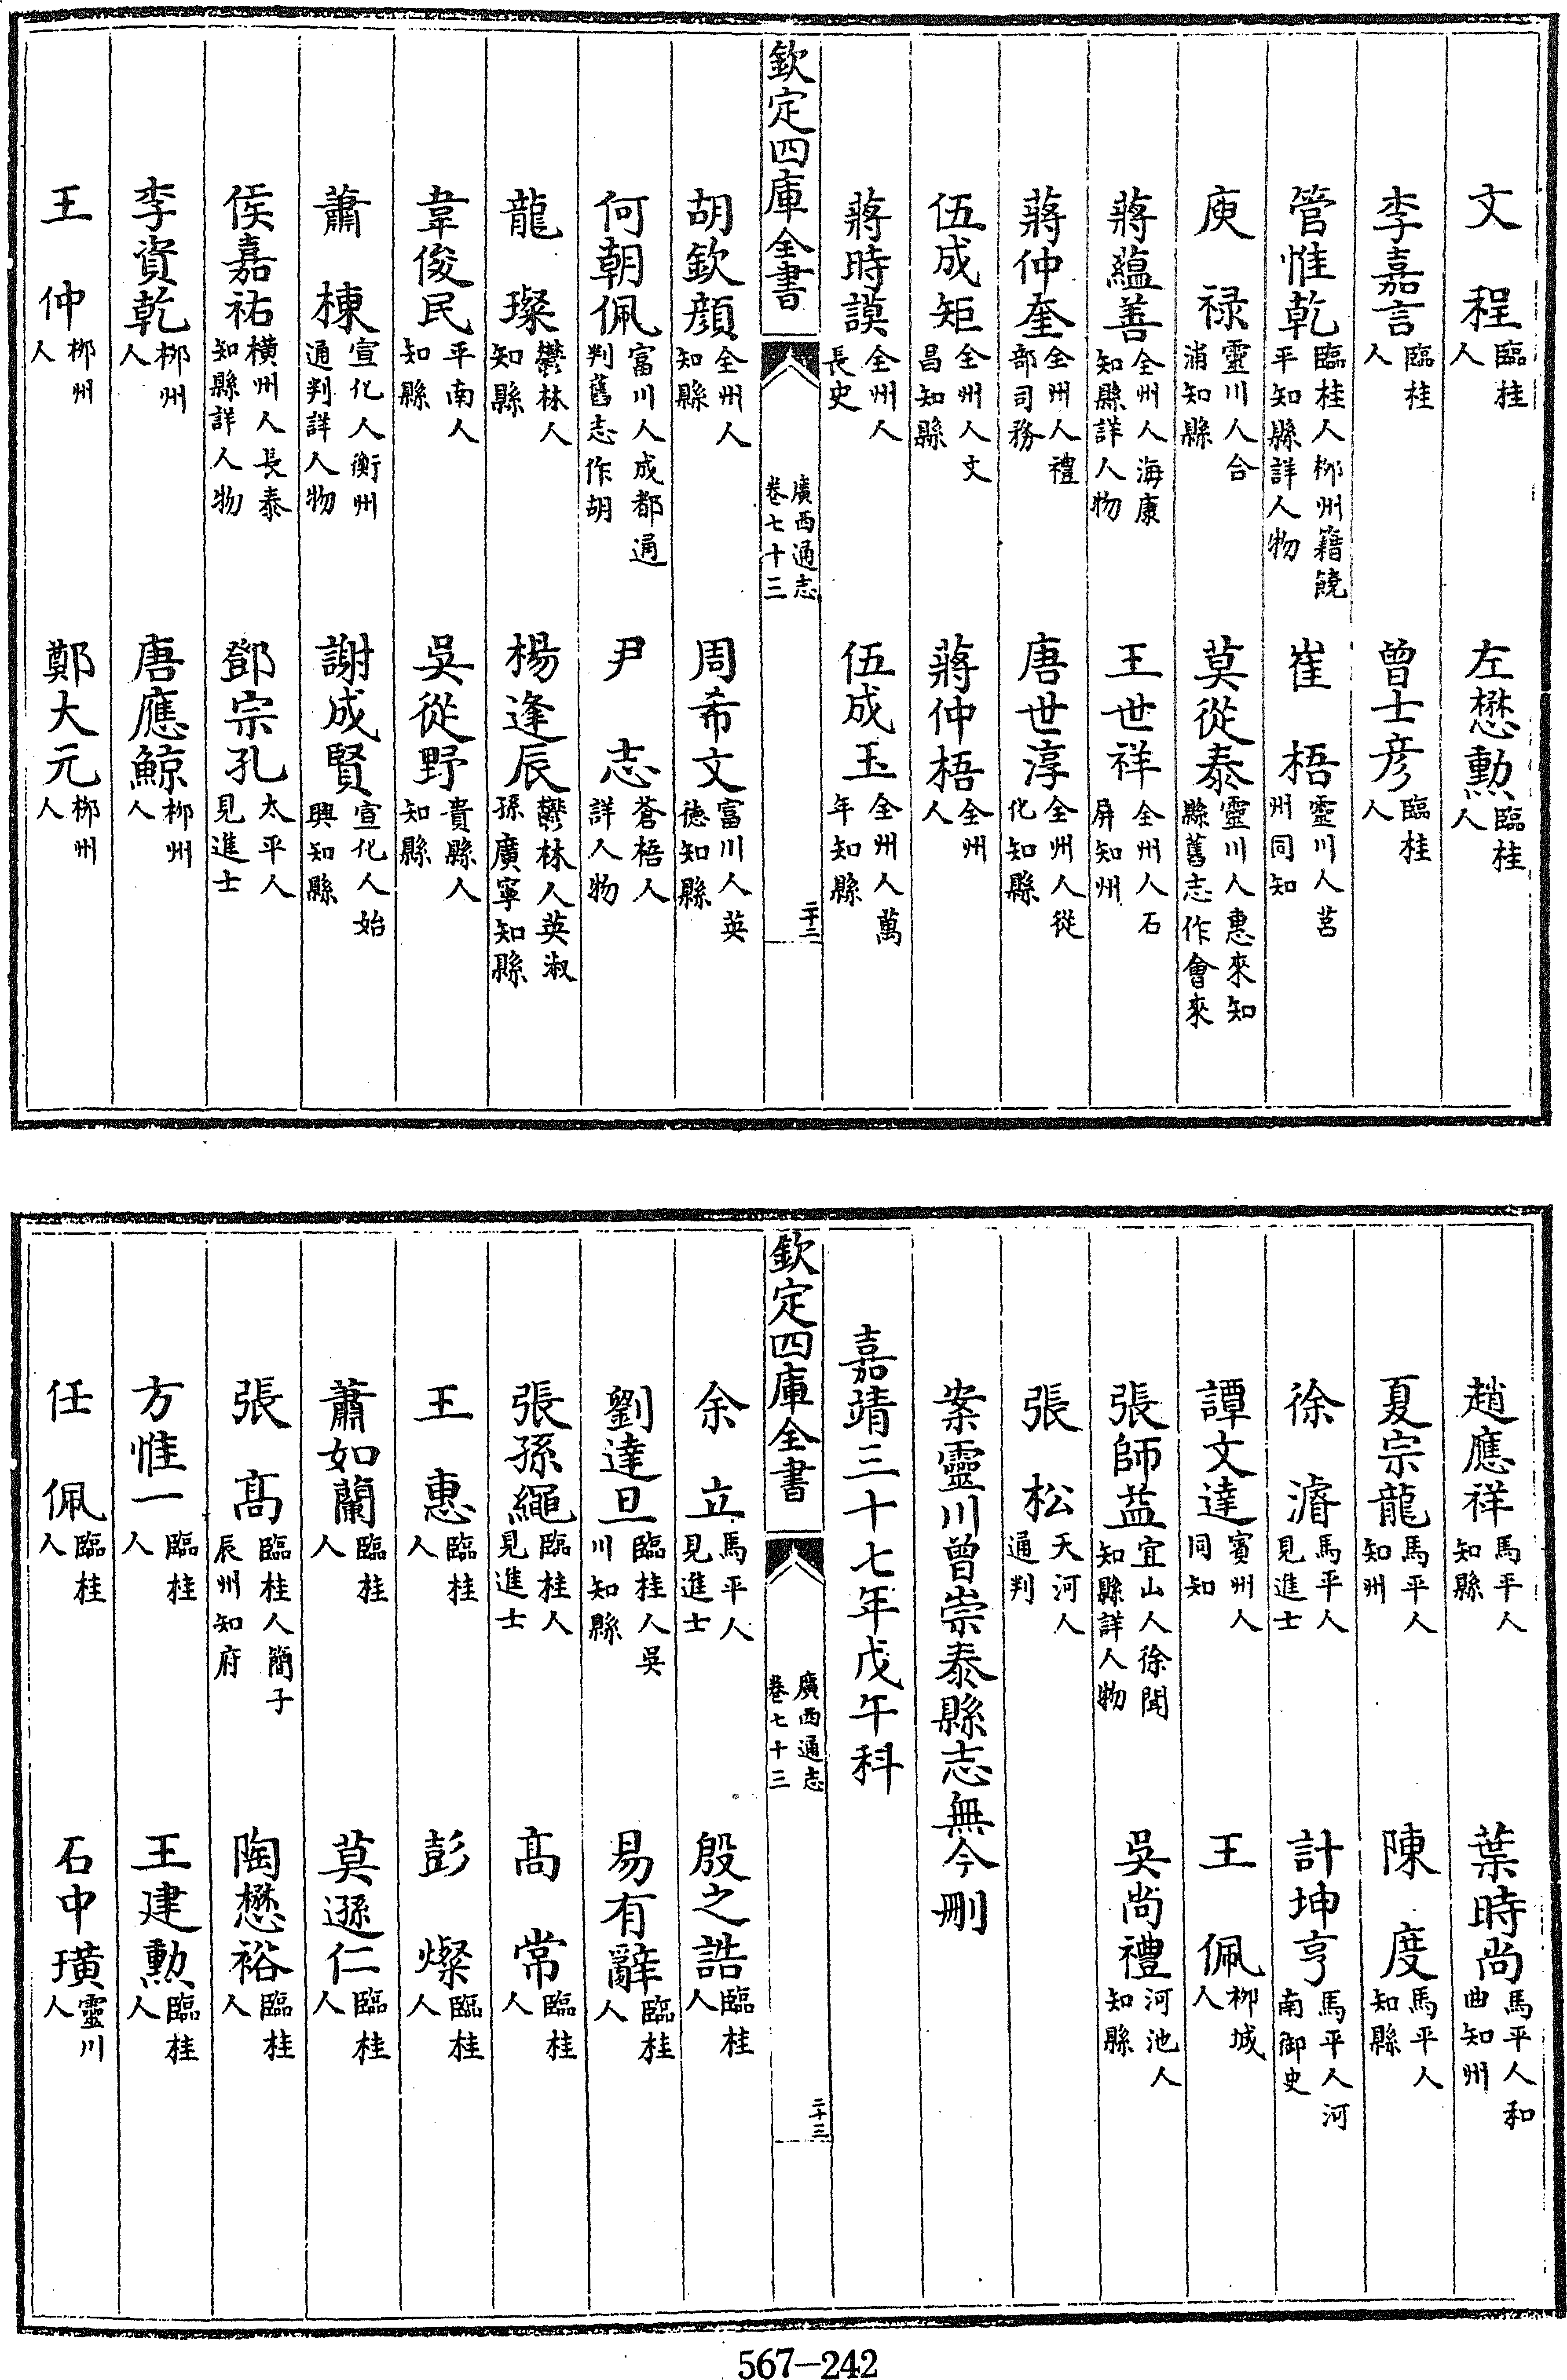 文　程臨桂人　左懋勲臨桂人
李嘉言臨桂人　曾士彦臨桂人
管惟乾臨桂人栁州籍饒平知縣詳人物　崔　梧靈川人莒州同知
庾　禄靈川人合浦知縣　莫從泰靈川人惠來知縣舊志作會來
蔣蘊善全州人海康知縣詳人物　王世祥全州人石屏知州
蔣仲奎全州人禮部司務　唐世淳全州人從化知縣
伍成矩全州人文昌知縣　蔣仲梧全州人
蔣時謨全州人長史　伍成玉全州人萬年知縣
欽定四庫全書　廣西通志卷七十三　二十二
胡欽顔全州人知縣　周希文富川人英德知縣
何朝佩富川人成都通判舊志作胡　尹　志蒼梧人詳人物
龍　璨鬱林人知縣　楊逢辰鬱林人英淑孫廣寧知縣
韋俊民平南人知縣　吳從野貴縣人知縣
蕭　棟宣化人衡州通判詳人物　謝成賢宣化人始興知縣
侯嘉祐橫州人長泰知縣詳人物　鄧宗孔太平人見進士
李資乾栁州人　唐應鯨栁州人
王　仲栁州人　鄭大元栁州人
趙應祥馬平人知縣　葉時尚馬平人和曲知州
夏宗龍馬平人知州　陳　度馬平人知縣
徐　濬馬平人見進士　計坤亨馬平人河南御史
譚文達賓州人同知　王　佩栁城人
張師益宜山人徐聞知縣詳人物　吳尚禮河池人知縣
張　松天河人通判
案靈川曾崇泰縣志無今刪
嘉靖三十七年戊午科
欽定四庫全書　廣西通志卷七十三　二十三
余　立馬平人見進士　殷之誥臨桂人
劉達旦臨桂人吳川知縣　易有辭臨桂人
張孫繩臨桂人見進士　髙　常臨桂人
王　惠臨桂人　彭　燦臨桂人
蕭如蘭臨桂人　莫遜仁臨桂人
張　髙臨桂人簡子辰州知府　陶懋裕臨桂人
方惟一臨桂人　王建勲臨桂人
任　佩臨桂人　石中璜靈川人
567-242